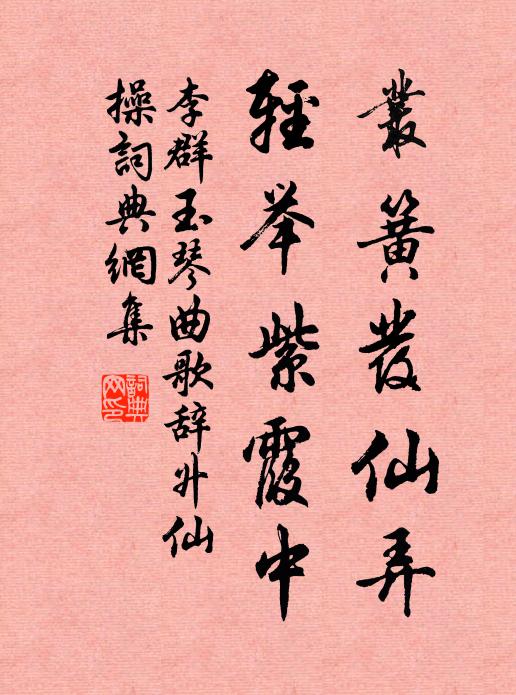 叢簧發仙弄
輕举紫霞中
李群玉琴曲歌辞升仙
操詞典網集
詞典
网印